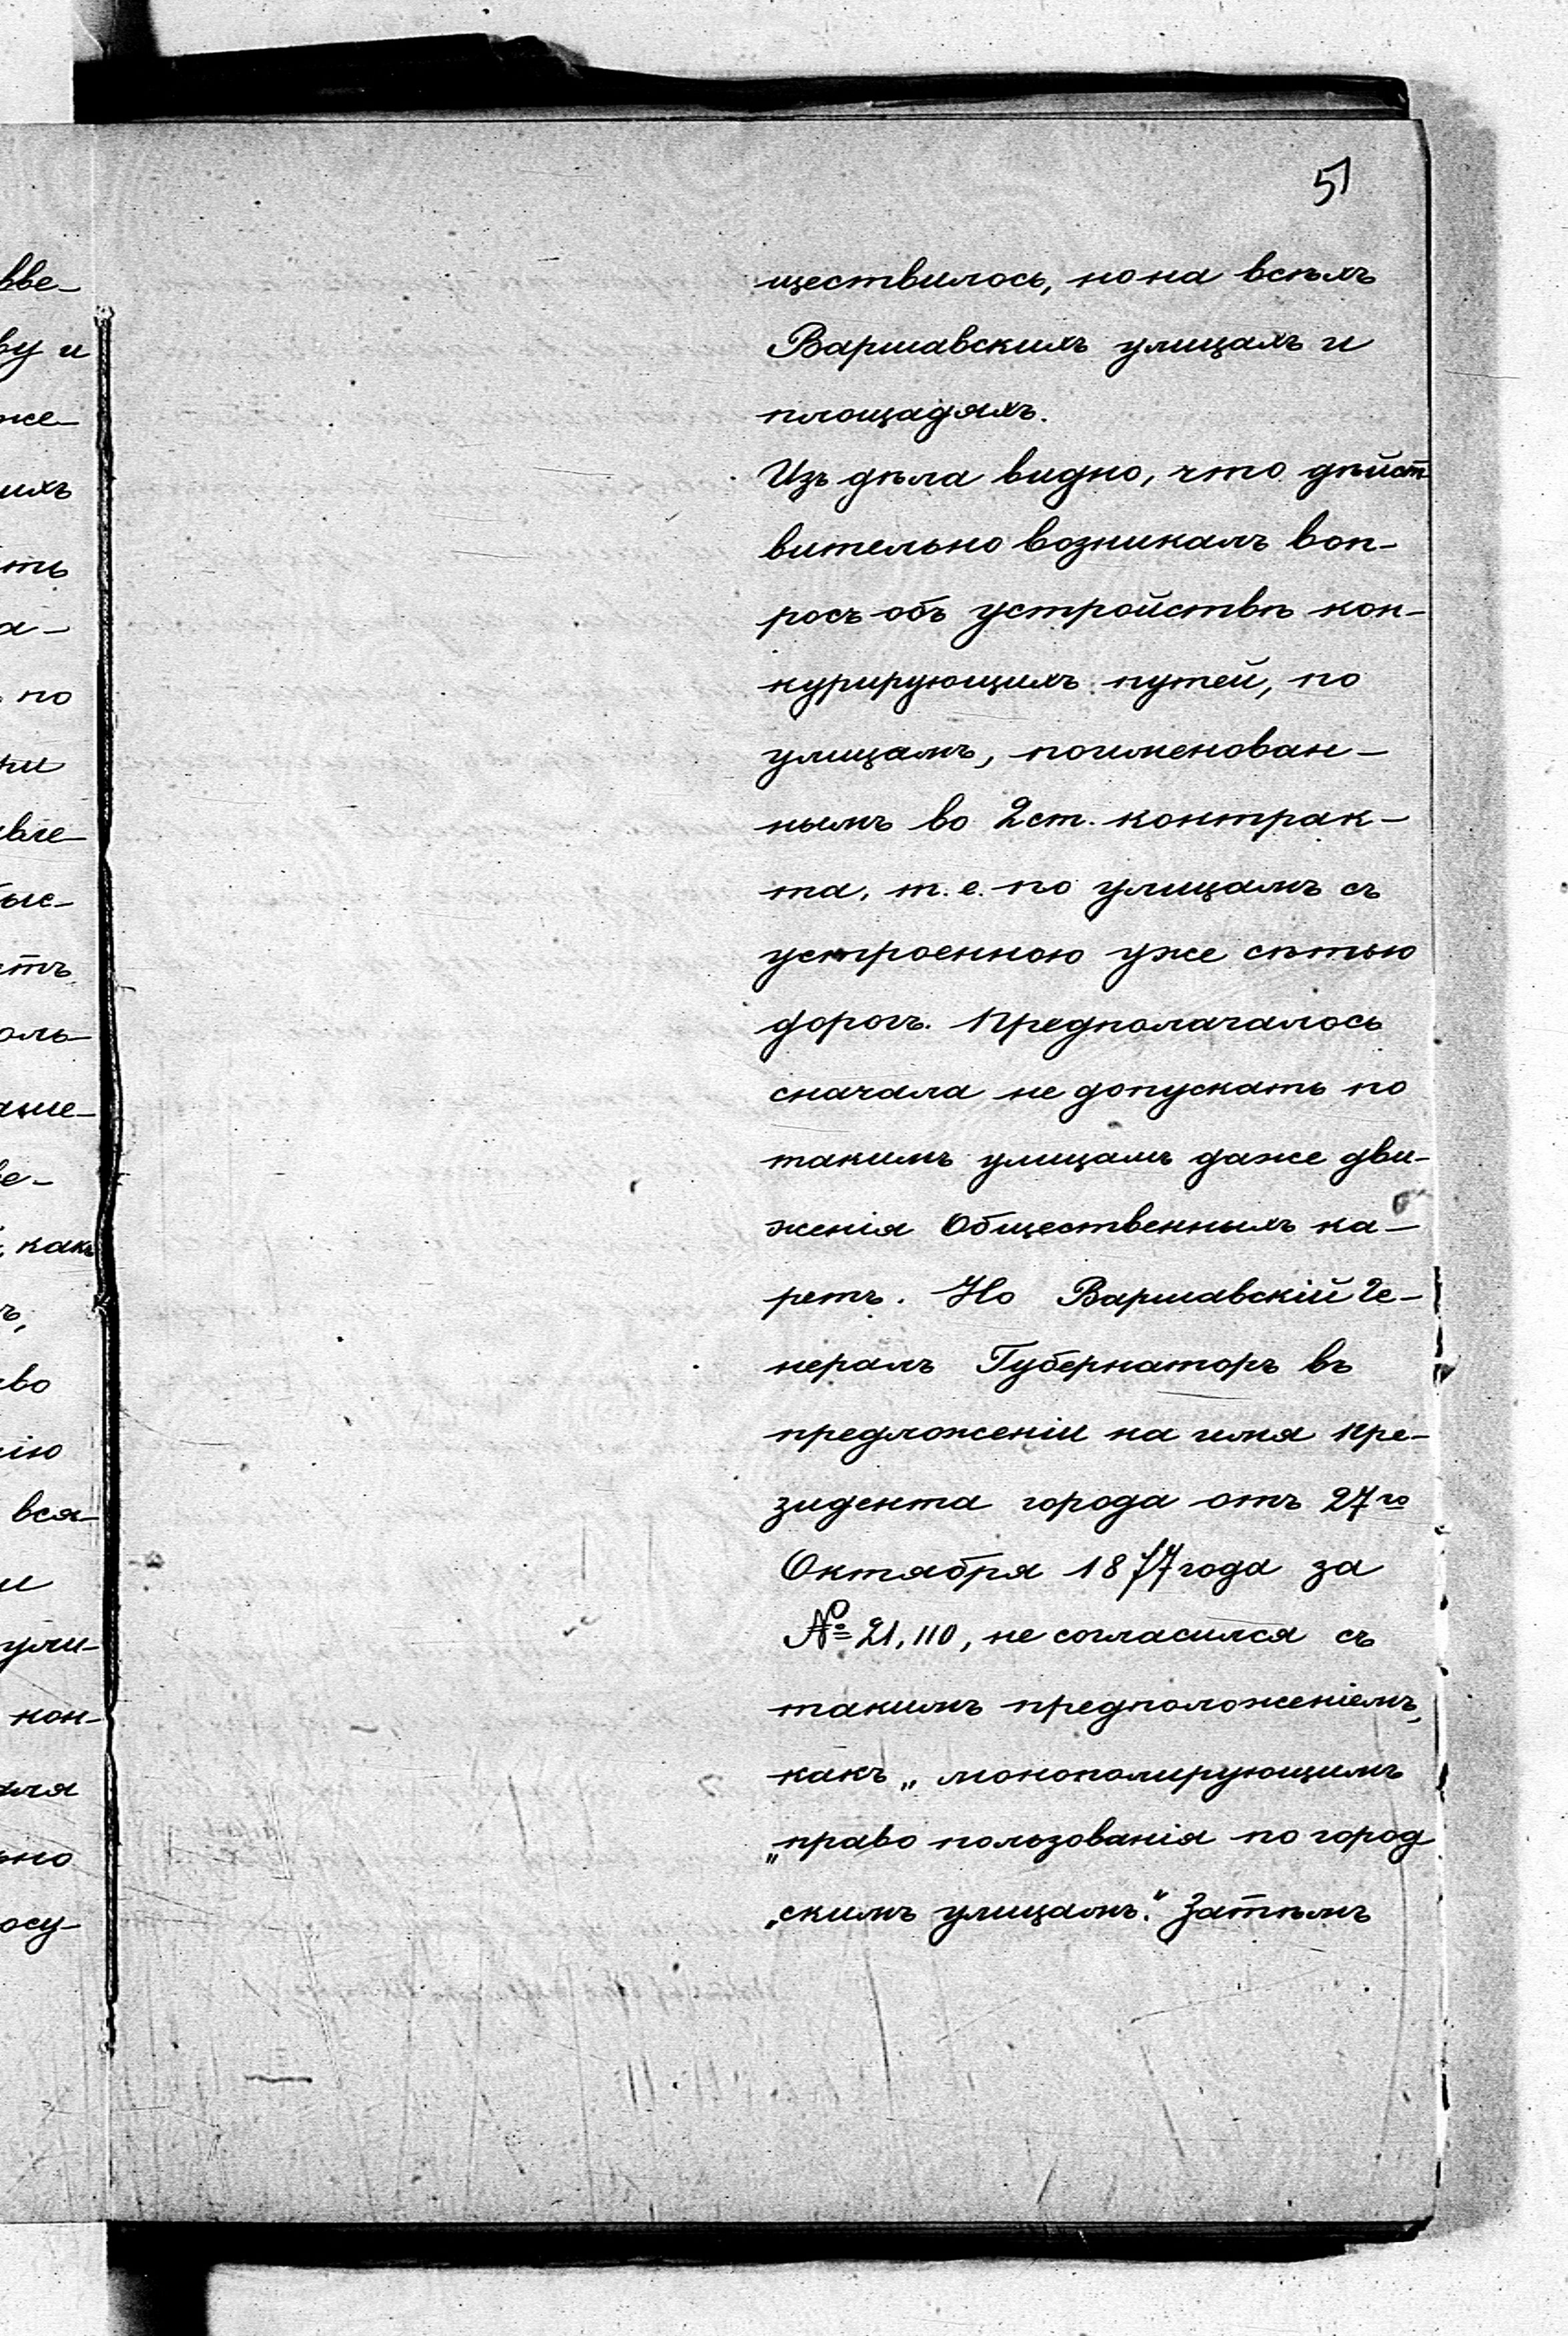 51
ществилось, но на всѣхъ
Варшавскихъ улицахъ и
площадяхъ.
Изъ дѣла видно, что дѣйст-
вительно возникалъ воп-
росъ объ устройствѣ кон-
курирующихъ путей, по
улицамъ, поименован-
нымъ во 2 ст. контрак-
та, т. е. по улицамъ съ
устроенною уже сѣтью
дорогъ. Предполагалось
сначала не допускать по
такимъ улицамъ даже дви-
женія Общественныхъ ка-
ретъ. Но Варшавскій Ге-
нералъ Губернаторъ въ
предложеніи на имя Пре-
зидента города отъ 27го
Октября 1877 года за
№ 21,110, не согласился съ
такимъ предположеніемъ,
какъ „монополирующимъ
„право пользованія по город
„скимъ улицамъ“. Затѣмъ